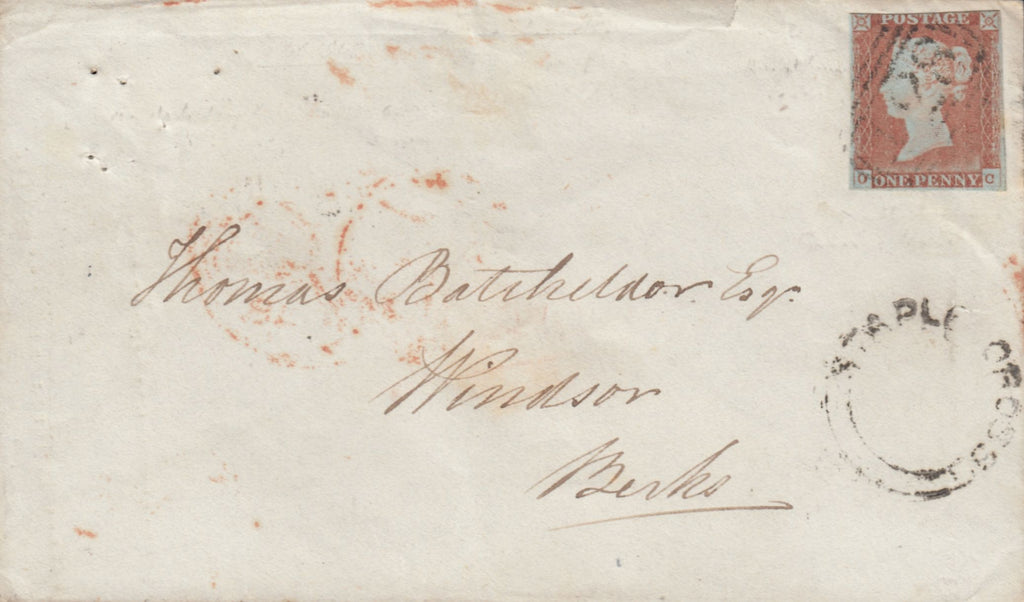 POSTAGE
O ONE PENNY C
Thomas Batcheldor Esqr.
Windsor
Berks
STAPLE CROSS